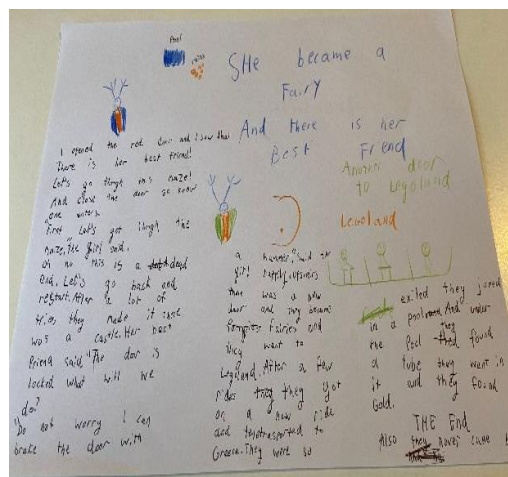 Pool
SHe became a
Fairy
And there is her
Best Friend
Another door
to Legoland
Legoland
I opened the red door and I saw that
There is her best friend!
Let's go through this maze!
And close the door so
one enters.
First Let's get through the
maze," the girl said.
oh no this is a dead
end. Let's go back and
restart. After a lot of
tries, they made it
was a castle. Her best
friend said, "The door is
locked what will we
do?
"Do not worry I can
brake the door with
a hammer," said the
girl
that was a new
door and they became
fairies and
they want to
Legoland. After a few
rides they they got
on a new ride
and to
Greece. They were so
exited they jumped
in a pool And under
the Pool they found
a tube they went in
it and they found
Gold.
THE End
Also never came